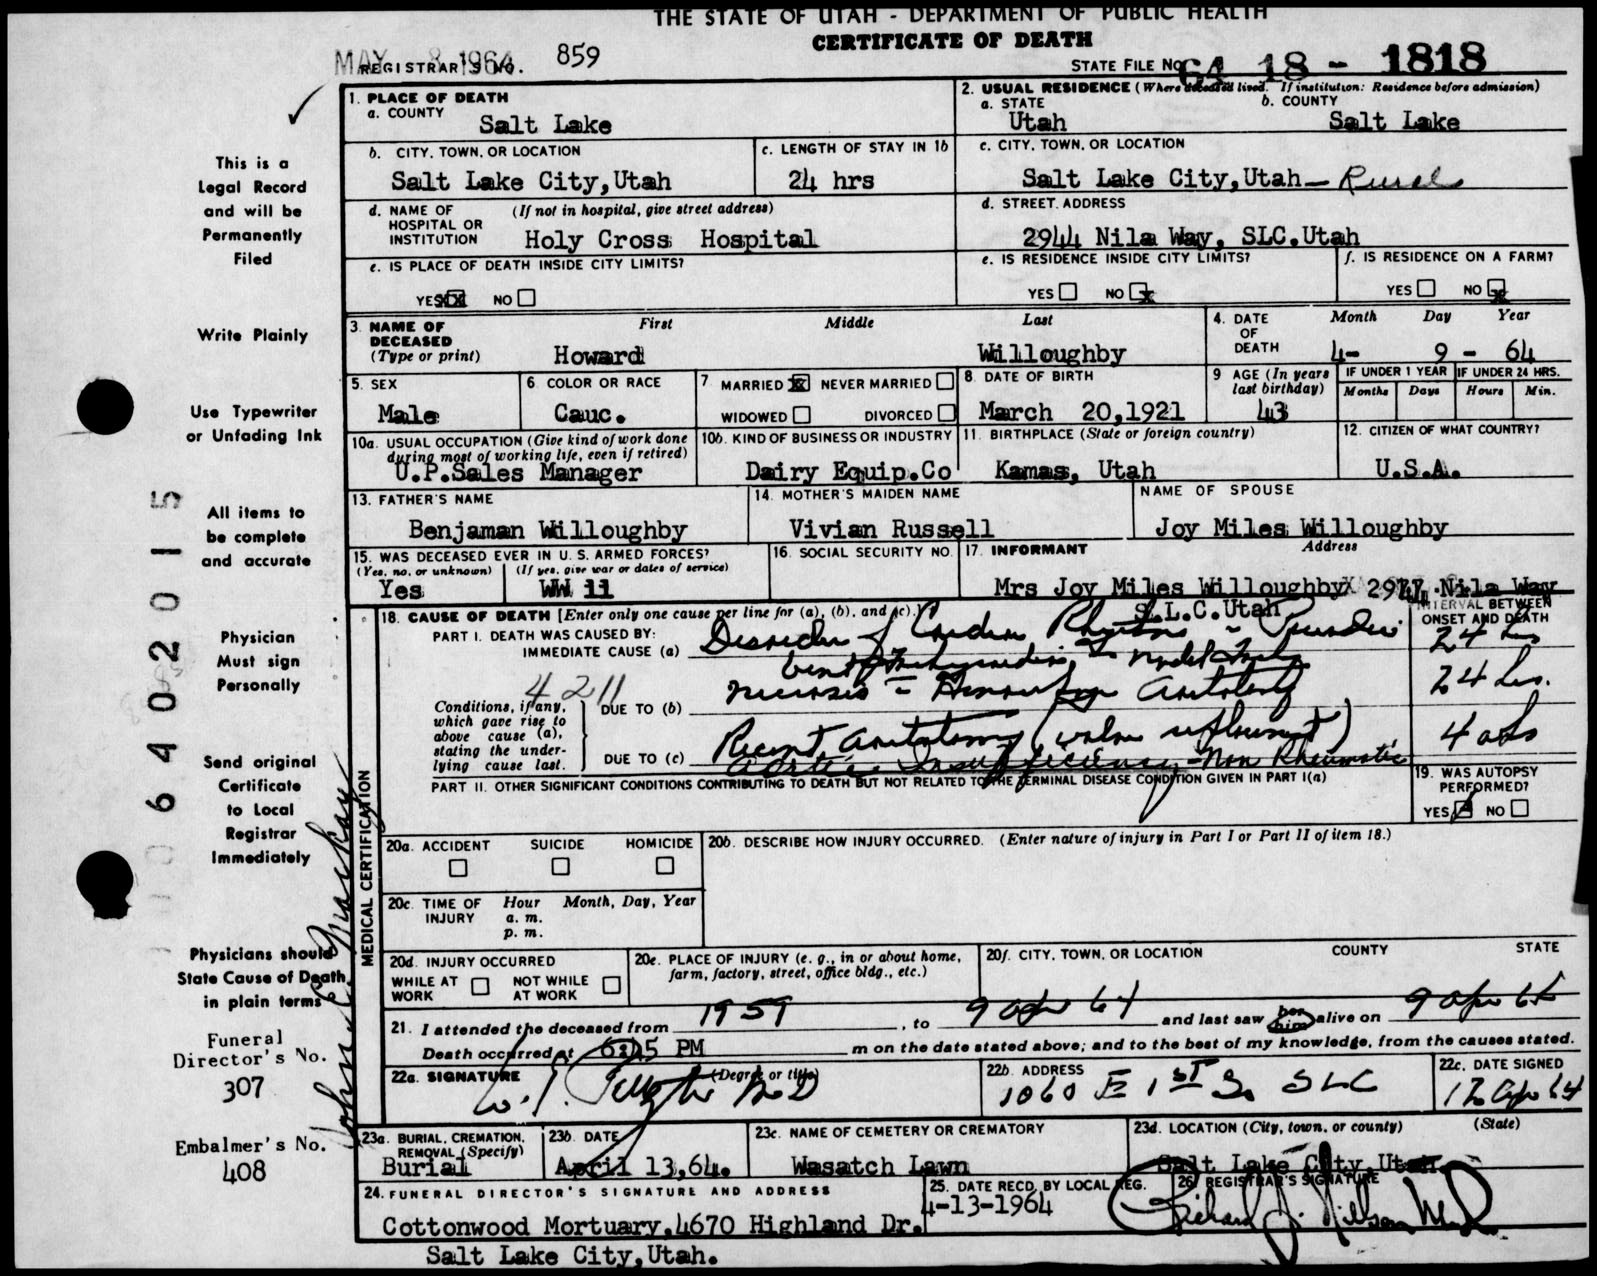 THE STATE OF UTAH - DEPARTMENT OF PUBLIC HEALTH
CERTIFICATE OF DEATH
MAY 8 1964
REGISTRAR'S NO. 859
STATE FILE NO. 64 18 - 1818
This is a
Legal Record
and will be
Permanently
Filed
Write Plainly
Use Typewriter
or Unfading Ink
All items to
be complete
and accurate
Physician
Must sign
Personally
Send original
Certificate
to Local
Registrar
Immediately
Physicians should
State Cause of Death
in plain terms
Funeral
Director's No.
307
Embalmer's No.
408
6402015
1. PLACE OF DEATH
a. COUNTY
Salt Lake
2. USUAL RESIDENCE (Where deceased lived. If institution: Residence before admission)
a. STATE b. COUNTY
Utah Salt Lake
b. CITY, TOWN, OR LOCATION
Salt Lake City,Utah
c. LENGTH OF STAY IN 1b
24 hrs
c. CITY, TOWN, OR LOCATION
Salt Lake City,Utah - Rural
d. NAME OF (If not in hospital, give street address)
HOSPITAL OR
INSTITUTION Holy Cross Hospital
d. STREET ADDRESS
2944 Nila Way, SLC.Utah
e. IS PLACE OF DEATH INSIDE CITY LIMITS?
YES XX NO
e. IS RESIDENCE INSIDE CITY LIMITS?
YES NO x
f. IS RESIDENCE ON A FARM?
YES NO x
3. NAME OF DECEASED (Type or print)
First Middle Last
Howard Willoughby
4. DATE OF DEATH
Month Day Year
4- 9 - 64
5. SEX
Male
6. COLOR OR RACE
Cauc.
7. MARRIED x NEVER MARRIED
WIDOWED DIVORCED
8. DATE OF BIRTH
March 20,1921
9. AGE (In years last birthday)
43
IF UNDER 1 YEAR
Months Days
IF UNDER 24 HRS.
Hours Min.
10a. USUAL OCCUPATION (Give kind of work done
during most of working life, even if retired)
U.P.Sales Manager
10b. KIND OF BUSINESS OR INDUSTRY
Dairy Equip.Co
11. BIRTHPLACE (State or foreign country)
Kamas, Utah
12. CITIZEN OF WHAT COUNTRY?
U.S.A.
13. FATHER'S NAME
Benjaman Willoughby
14. MOTHER'S MAIDEN NAME
Vivian Russell
NAME OF SPOUSE
Joy Miles Willoughby
15. WAS DECEASED EVER IN U. S. ARMED FORCES?
(Yes, no, or unknown) (If yes, give war or dates of service)
Yes WW 11
16. SOCIAL SECURITY NO.
17. INFORMANT Address
Mrs Joy Miles Willoughby 2944 Nila Way
S.L.C.Utah
MEDICAL CERTIFICATION
18. CAUSE OF DEATH [Enter only one cause per line for (a), (b), and (c).]
INTERVAL BETWEEN
ONSET AND DEATH
PART I. DEATH WAS CAUSED BY:
IMMEDIATE CAUSE (a) Disorder of Cardiac Rhythm
24 hrs
4211
Conditions, if any,
which gave rise to
above cause (a),
stating the under-
lying cause last.
DUE TO (b) necrosis
24 hrs.
DUE TO (c) Recent (valve
Aortic Insufficiency - Non Rheumatic
PART II. OTHER SIGNIFICANT CONDITIONS CONTRIBUTING TO DEATH BUT NOT RELATED TO THE TERMINAL DISEASE CONDITION GIVEN IN PART I(a)
19. WAS AUTOPSY
PERFORMED?
YES NO
20a. ACCIDENT SUICIDE HOMICIDE
20b. DESCRIBE HOW INJURY OCCURRED. (Enter nature of injury in Part I or Part II of item 18.)
20c. TIME OF INJURY
Hour Month, Day, Year
a. m.
p. m.
20d. INJURY OCCURRED
WHILE AT WORK NOT WHILE AT WORK
20e. PLACE OF INJURY (e. g., in or about home,
farm, factory, street, office bldg., etc.)
20f. CITY, TOWN, OR LOCATION COUNTY STATE
21. I attended the deceased from 1959, to 9 Apr 64 and last saw her him alive on 9 Apr 64
Death occurred at 6:15 PM m on the date stated above; and to the best of my knowledge, from the causes stated.
22a. SIGNATURE (Degree or title)
22b. ADDRESS
1060 E 1st So SLC
22c. DATE SIGNED
12 Apr 64
23a. BURIAL, CREMATION,
REMOVAL (Specify)
Burial
23b. DATE
April 13,64.
23c. NAME OF CEMETERY OR CREMATORY
Wasatch Lawn
23d. LOCATION (City, town, or county) (State)
Salt Lake City,Utah.
24. FUNERAL DIRECTOR'S SIGNATURE AND ADDRESS
Cottonwood Mortuary,4670 Highland Dr.
Salt Lake City,Utah.
25. DATE RECD. BY LOCAL REG.
4-13-1964
26. REGISTRAR'S SIGNATURE
Richard J. Nilson M.D.